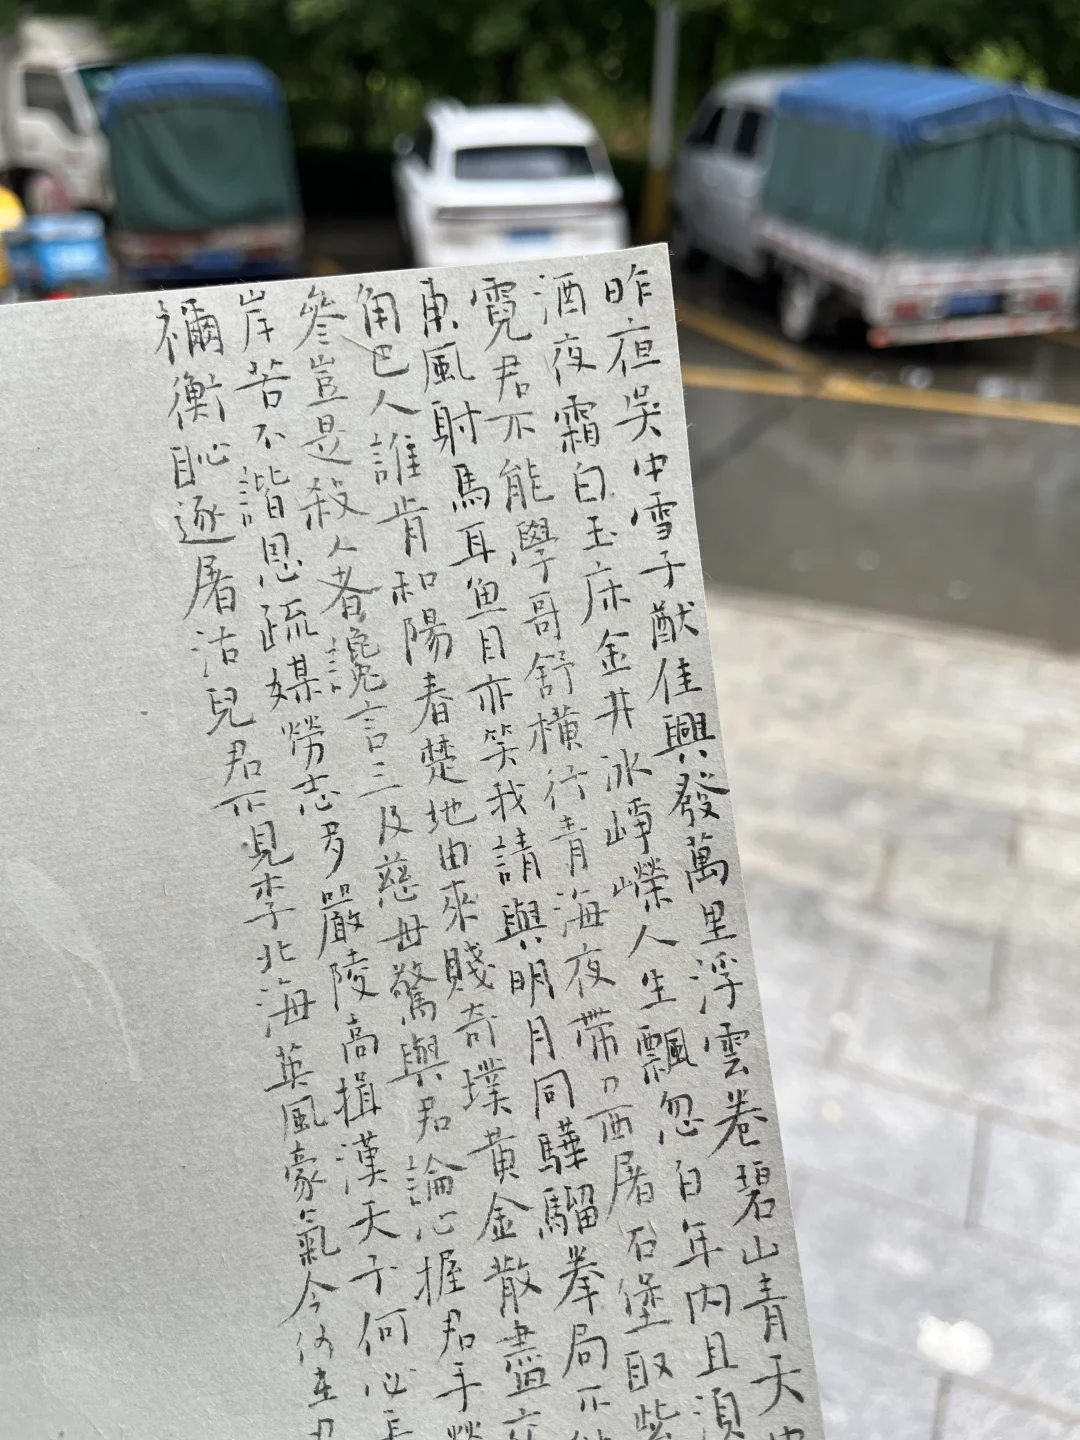 昨夜吳中雪子猷佳興發萬里浮雲卷碧山青天中
酒夜霜白玉床金井冰崢嶸人生飄忽百年內且須
霓君不能學哥舒橫行青海夜帶刀西屠石堡取紫
東風射馬耳魚目亦笑我請與明月同驊騮拳局不能
角巴人誰肯和陽春楚地由來賤奇璞黃金散盡交
參豈是殺人者讒言三及慈母驚與君論心握君手榮
岸苦不諧恩疏媒勞志多嚴陵高揖漢天子何必長
禰衡恥逐屠沽兒君不見李北海英風豪氣今何在君